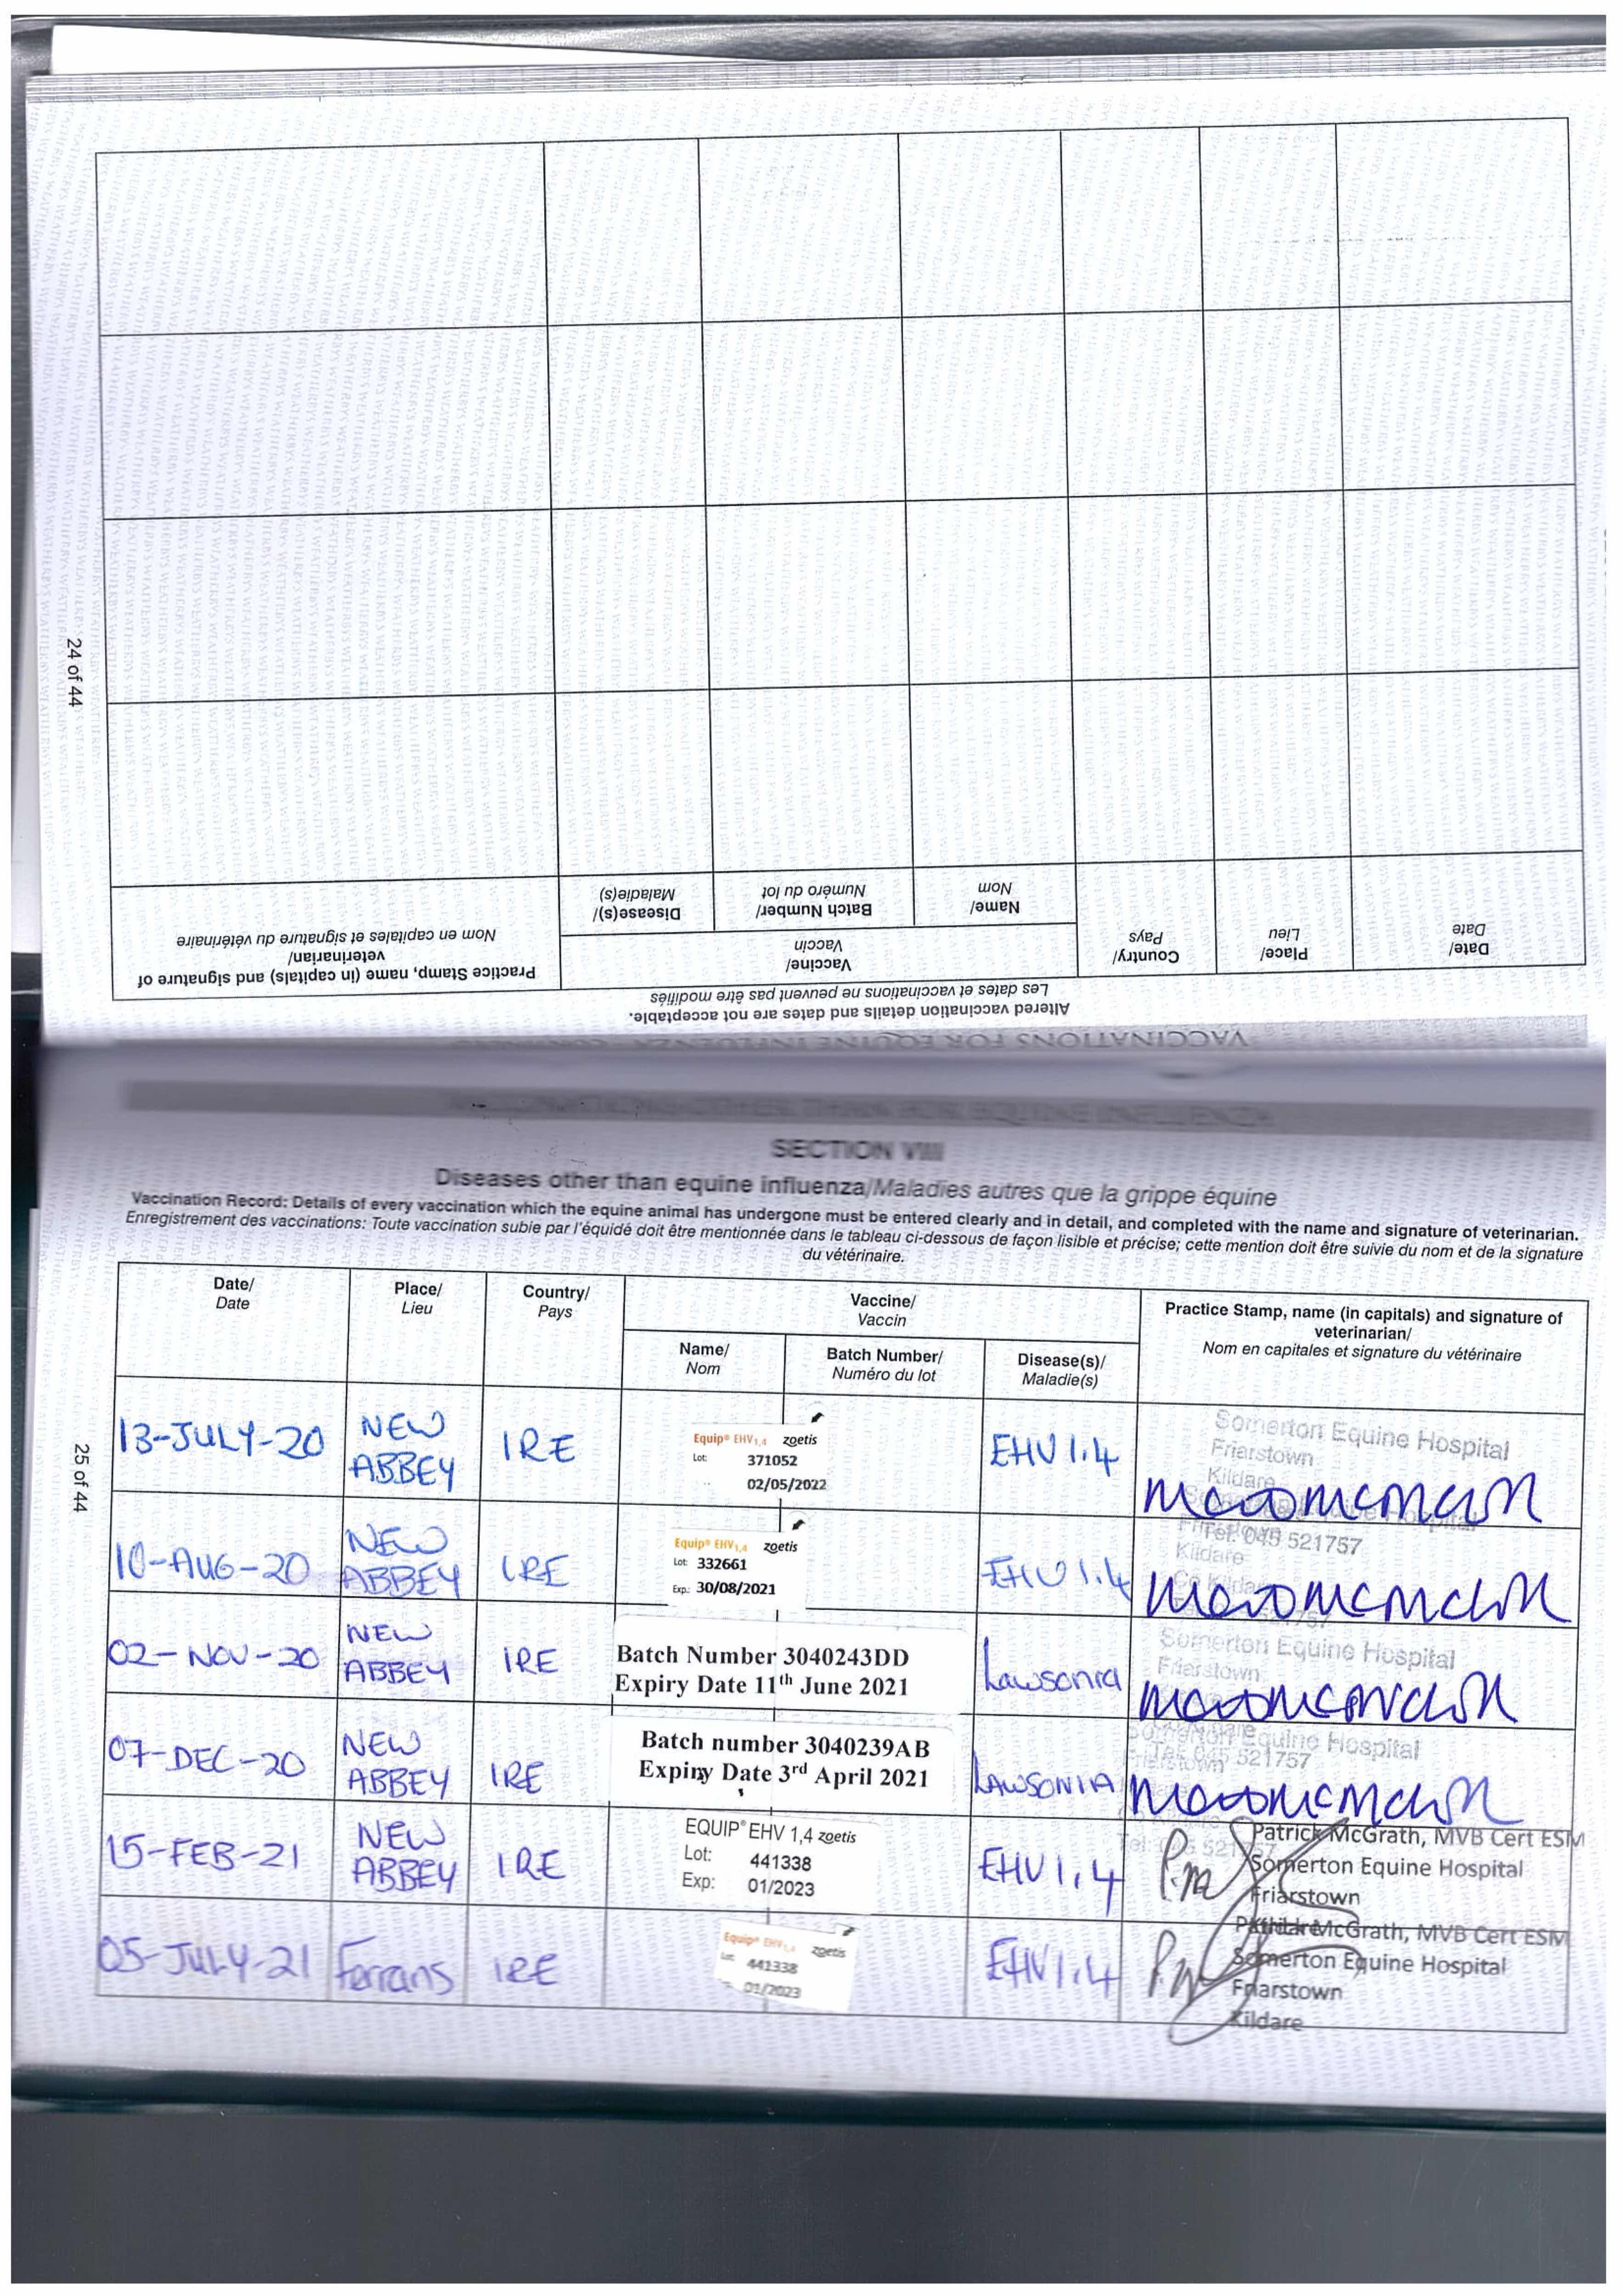 24 of 44
VACCINATIONS FOR EQUINE INFLUENZA
Altered vaccination details and dates are not acceptable.
Les dates et vaccinations ne peuvent pas être modifiés
Date/
Date
Place/
Lieu
Country/
Pays
Vaccine/
Vaccin
Name/
Nom
Batch Number/
Numéro du lot
Disease(s)/
Maladie(s)
Practice Stamp, name (in capitals) and signature of
veterinarian/
Nom en capitales et signature du vétérinaire
25 of 44
SECTION VIII
Diseases other than equine influenza/Maladies autres que la grippe équine
Vaccination Record: Details of every vaccination which the equine animal has undergone must be entered clearly and in detail, and completed with the name and signature of veterinarian.
Enregistrement des vaccinations: Toute vaccination subie par l'équidé doit être mentionnée dans le tableau ci-dessous de façon lisible et précise; cette mention doit être suivie du nom et de la signature
du vétérinaire.
Date/
Date
Place/
Lieu
Country/
Pays
Vaccine/
Vaccin
Name/
Nom
Batch Number/
Numéro du lot
Disease(s)/
Maladie(s)
Practice Stamp, name (in capitals) and signature of
veterinarian/
Nom en capitales et signature du vétérinaire
13-JULY-20
NEW
ABBEY
IRE
Equip® EHV1,4 zoetis
Lot: 371052
02/05/2022
EHV 1.4
Somerton Equine Hospital
Friarstown
Kildare
Tel: 045 521757
10-AUG-20
NEW
ABBEY
IRE
Equip® EHV1,4 zoetis
Lot: 332661
Exp.: 30/08/2021
EHV 1.4
Kildare
02-NOV-20
NEW
ABBEY
IRE
Batch Number 3040243DD
Expiry Date 11th June 2021
Lawsonia
Somerton Equine Hospital
Friarstown
07-DEC-20
NEW
ABBEY
IRE
Batch number 3040239AB
Expiry Date 3rd April 2021
LAWSONIA
Somerton Equine Hospital
521757
15-FEB-21
NEW
ABBEY
IRE
EQUIP® EHV 1,4 zoetis
Lot: 441338
Exp: 01/2023
EHV 1.4
Patrick McGrath, MVB Cert ESM
Somerton Equine Hospital
Friarstown
05-JULY-21
Ferrans
IRE
Equip® EHV1,4 zoetis
Lot: 441338
01/2023
EHV 1.4
Patrick McGrath, MVB Cert ESM
Somerton Equine Hospital
Friarstown
Kildare